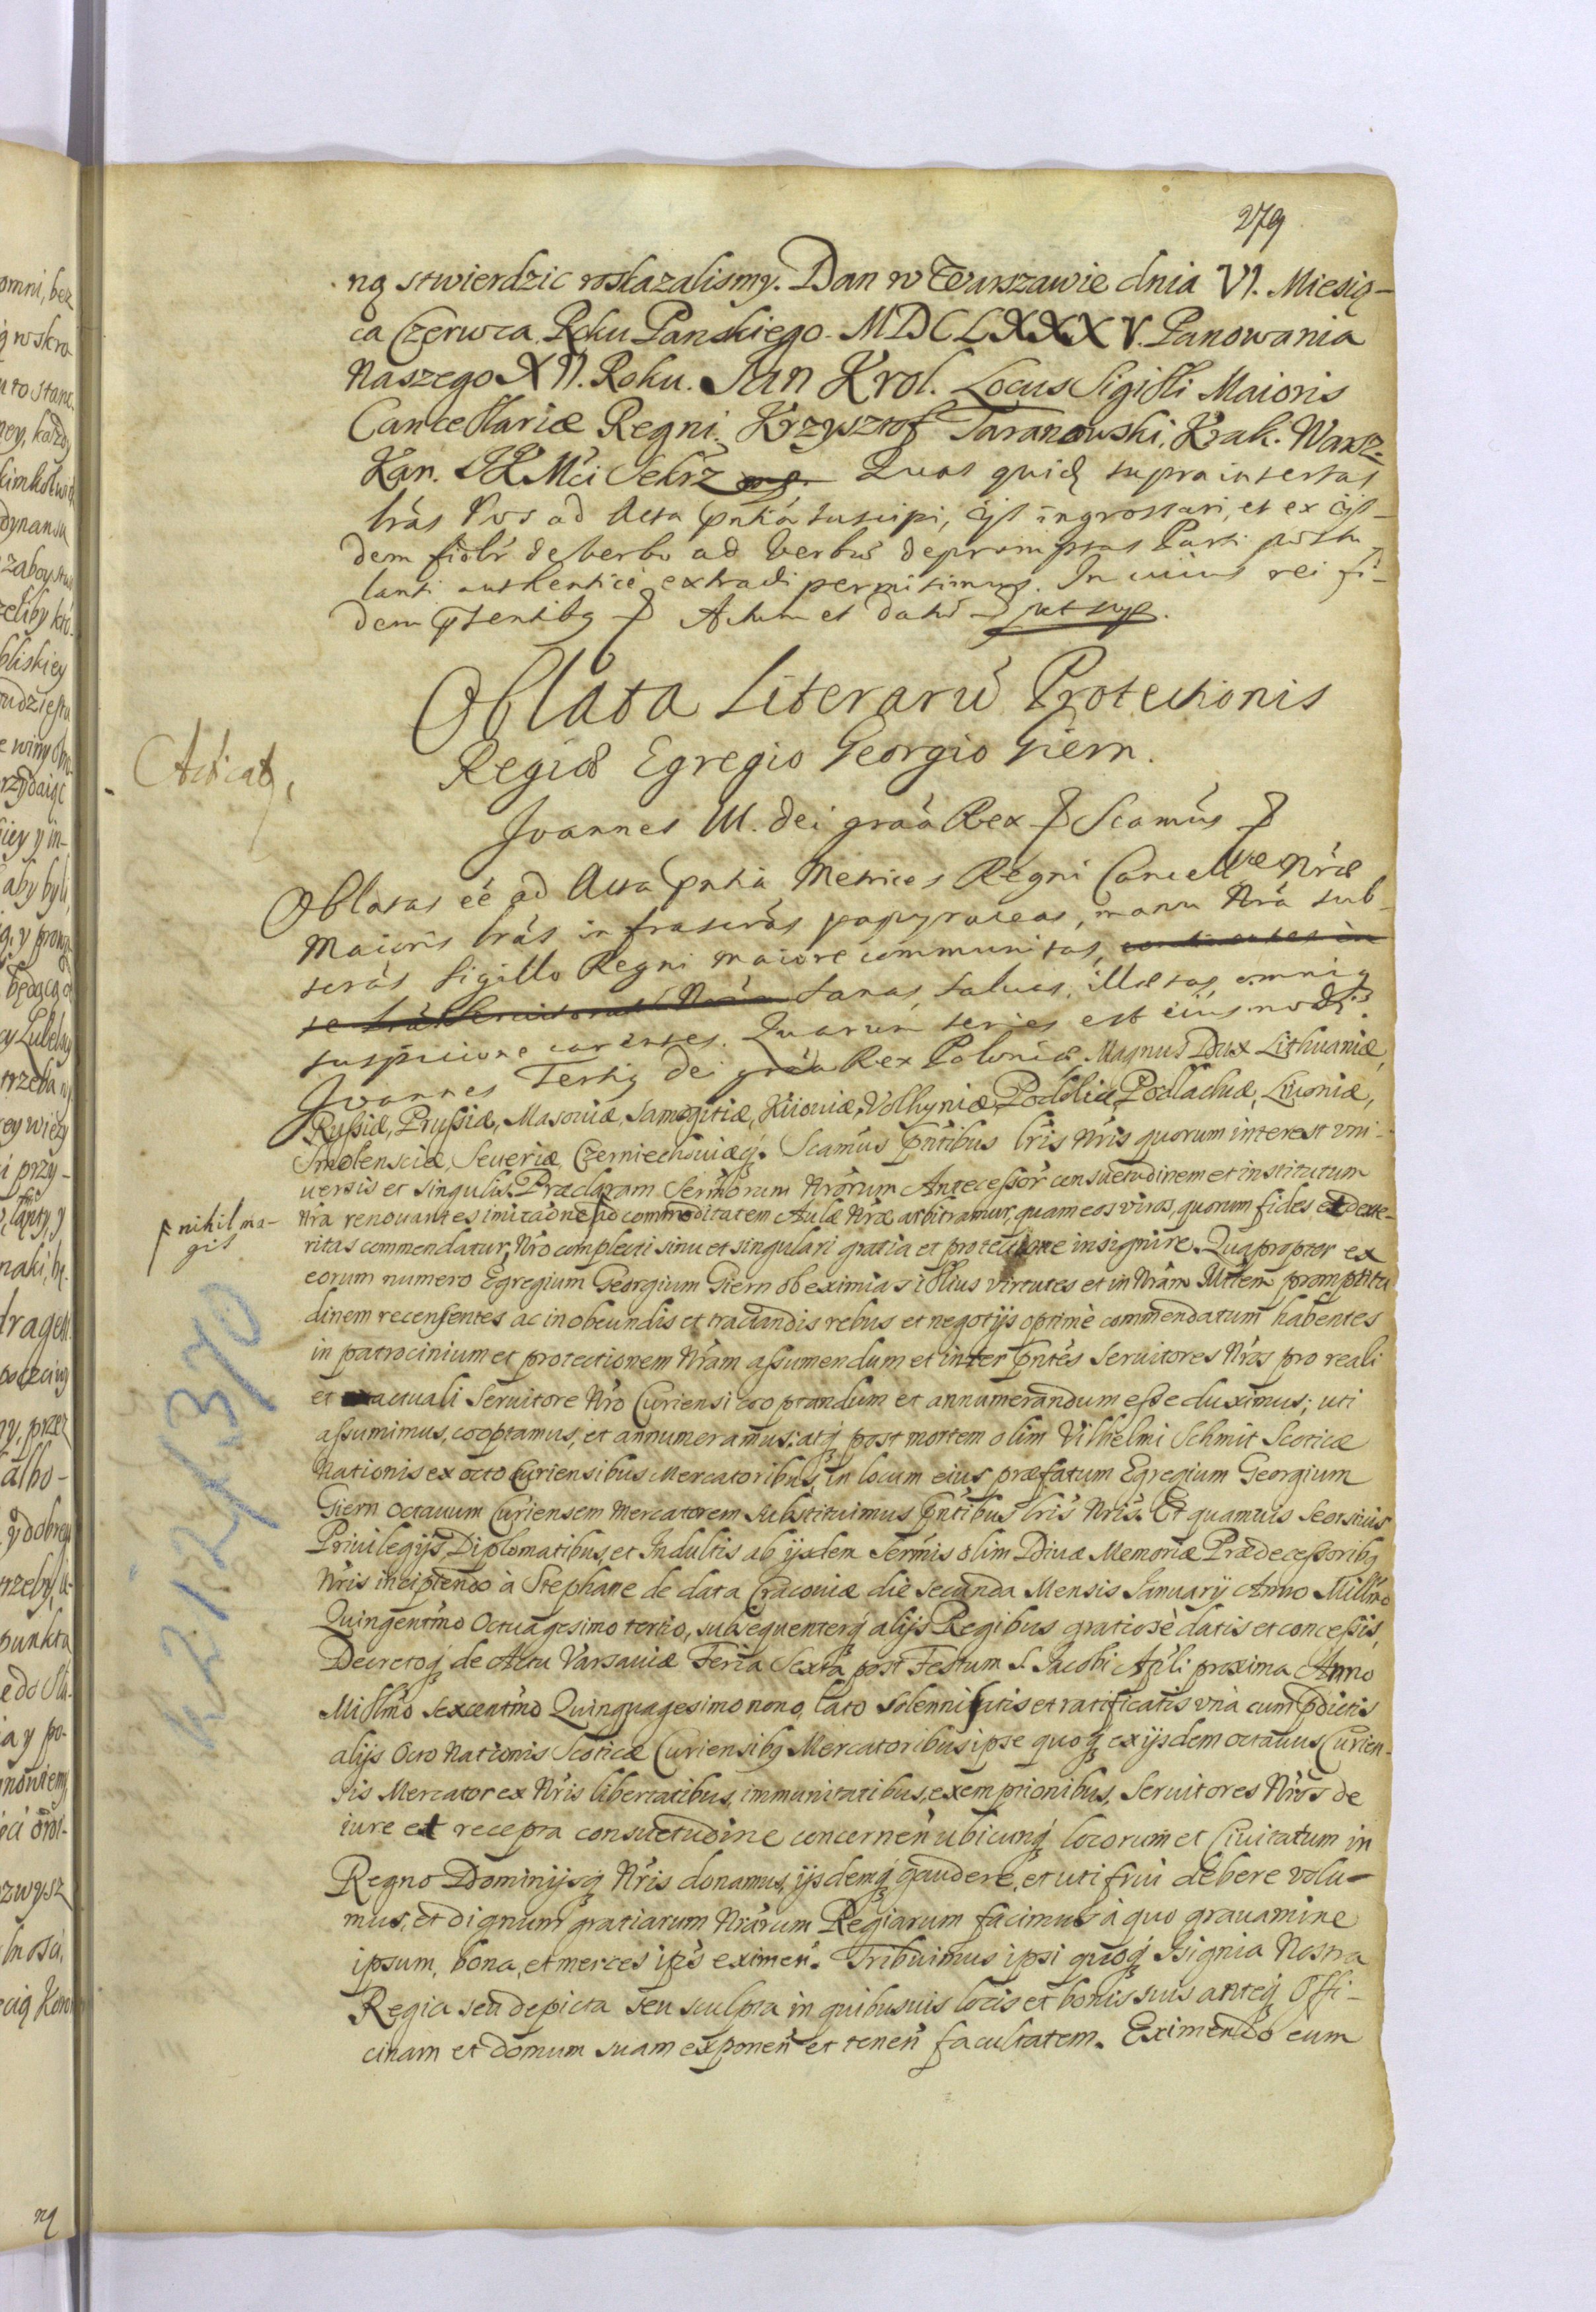 279
ną stwierdzic roskazalismy. Dan w Warszawie dnia VI. Miesią-
ca Czerwca Roku Panskiego. MDCLXXXV. Panowania
Naszego XII. Roku. Jan Krol. Locus Sigilli Maioris
Cancellariæ Regni. Krzysztof Taranowski, Krak. Warsz:
Kan. JKMći Sekrz Quas quidę supra insertas
lrás Nos ad Acta pntia suscipi, ijs ingrossari, et ex ijs-
dem fidelr de verbo ad verbũ depromptas Parti postu-
lanti authentice extradi permisimus. In cuius rei fi-
dem pntibq Actum et datũ ut sup.
Oblata Literarũ Protectionis
Regiæ Egregio Georgio Giern.
Joannes III. Dei graã Rex Scamús
Oblatas eé ad Acta pntia Metrices Regni Cancellriæ Nræ
Maioris lrás infrascrás papyraceas, manu Nrá sub-
scrás Sigillo Regni maiore communitas, continentes in
se Nrã sanas, saluas, illæsas, omniq
suspicione carentes. Quarum series est eiusmodi:
Joannes Tertiq Dei graã Rex Poloniæ, Magnus Dux Lithuaniæ,
Russiæ, Prussiæ, Masouiæ, Samogitiæ, Kijouiæ, Volhyniæ, Podoliæ, Podlachiæ, Liuoniæ,
Smolensciæ, Seueriæ, Czerniechouiæq. Scamus pntibus lris Nris quorum interest vni-
uersis et singulis. Præclaram Sermorum Nrorum Antecessor consuetudinem et institutum
Nra renouantes imitaone ad commoditatem Aulæ Nræ arbitramur, quam eos viros, quorum fides et dexte-
nihil ma-
gis
ritas commendatur, Nro complecti sinu et singulari gratia et protectione insignire. Quapropter ex
eorum numero Egregium Georgium Giern ob eximias illius virtutes et in Nram Mttem promptitu
dinem recensentes ac in obeundis et tractandis rebus et negotijs optimè commendatum habentes
in patrocinium et protectionem Nram assumendum et inter pntes Seruitores Nros pro reali
et actuali Seruitore Nro Curiensi cooptandum et annumerandum esse duximus; uti
assumimus, cooptamus, et annumeramus: atq post mortem olim Vilhelmi Schmit Scoticæ
Nationis ex octo Curiensibus Mercatoribus, in locum eius præfatum Egregium Georgium
Giern Octauum Curiensem Mercatorem substituimus pntibus lris Nris. Et quamuis seorsiuis
Priuilegijs, Diplomatibus, et Indultis ab ijsdem Sermis olim Diuæ Memoriæ Prædecessoribq
Nris incipiendo à Stephane de data Cracouiæ die secunda Mensis Januarij Anno Millmo
Quingentmo Octuagesimo tertio, subsequenterq alijs Regibus gratiosè datis et concessis,
Decretoq de Actu Varsauiæ Feria Sexta post Festum S. Jacobi Apli proxima Anno
Millmo sexcentmo Quinquagesimo nono, lato solennisatis et ratificatis vnà cum pdictis
alijs Octo Nationis Scoticæ Curiensibq Mercatoribus ipse quoq ex ijsdem octauus Curien-
sis Mercator ex Nris libertatibus, immunitatibus, exemptionibus, Seruitores Nros de
iure et recepta consuetudine concernen ubicunq locorum et Ciuitatum in
Regno Dominijsq Nris donamus, ijsdemq gaudere, et uti frui debere volu-
mus, et dignum gratiarum Nrarum Regiarum facimus à quo grauamine
ipsum, bona, et merces ipś eximen. Tribuimus ipsi quoq Isignia Nostra
Regia seu depicta seu sculpta in quibusuis locis et bonis suis anteq Offi-
cinam et domum suam exponen et tenen facultatem. Eximendo eum